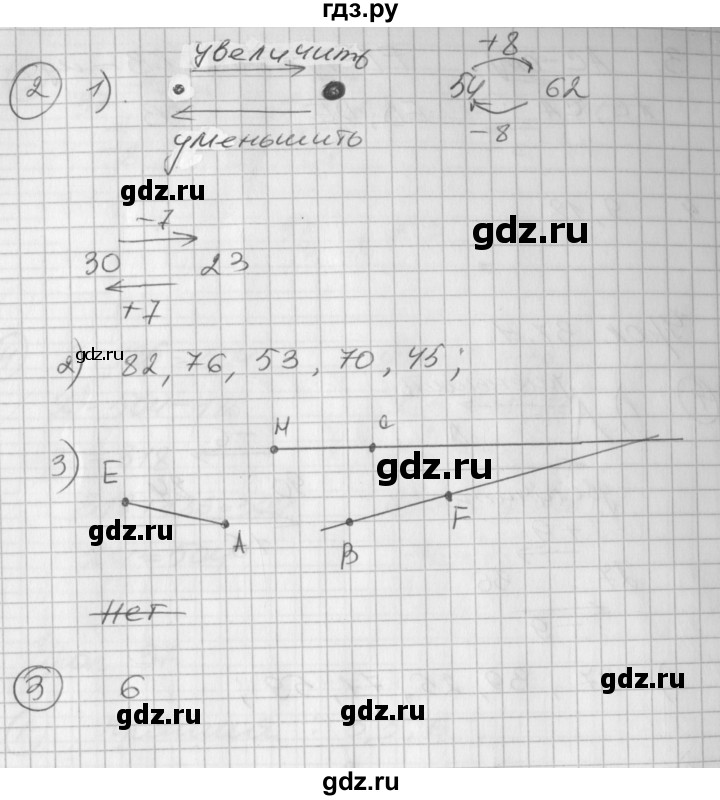 гдз.ру
увеличить
+8
2 1)
54 62
уменьшить
-8
gdz.ru
-7
gdz.ru
30 23
+7
gdz.ru
2) 82, 76, 53, 70, 45;
M C
3) E
gdz.ru
gdz.ru
A B F
Нет
3 6
gdz.ru
gdz.ru
gdz.ru
gdz.ru